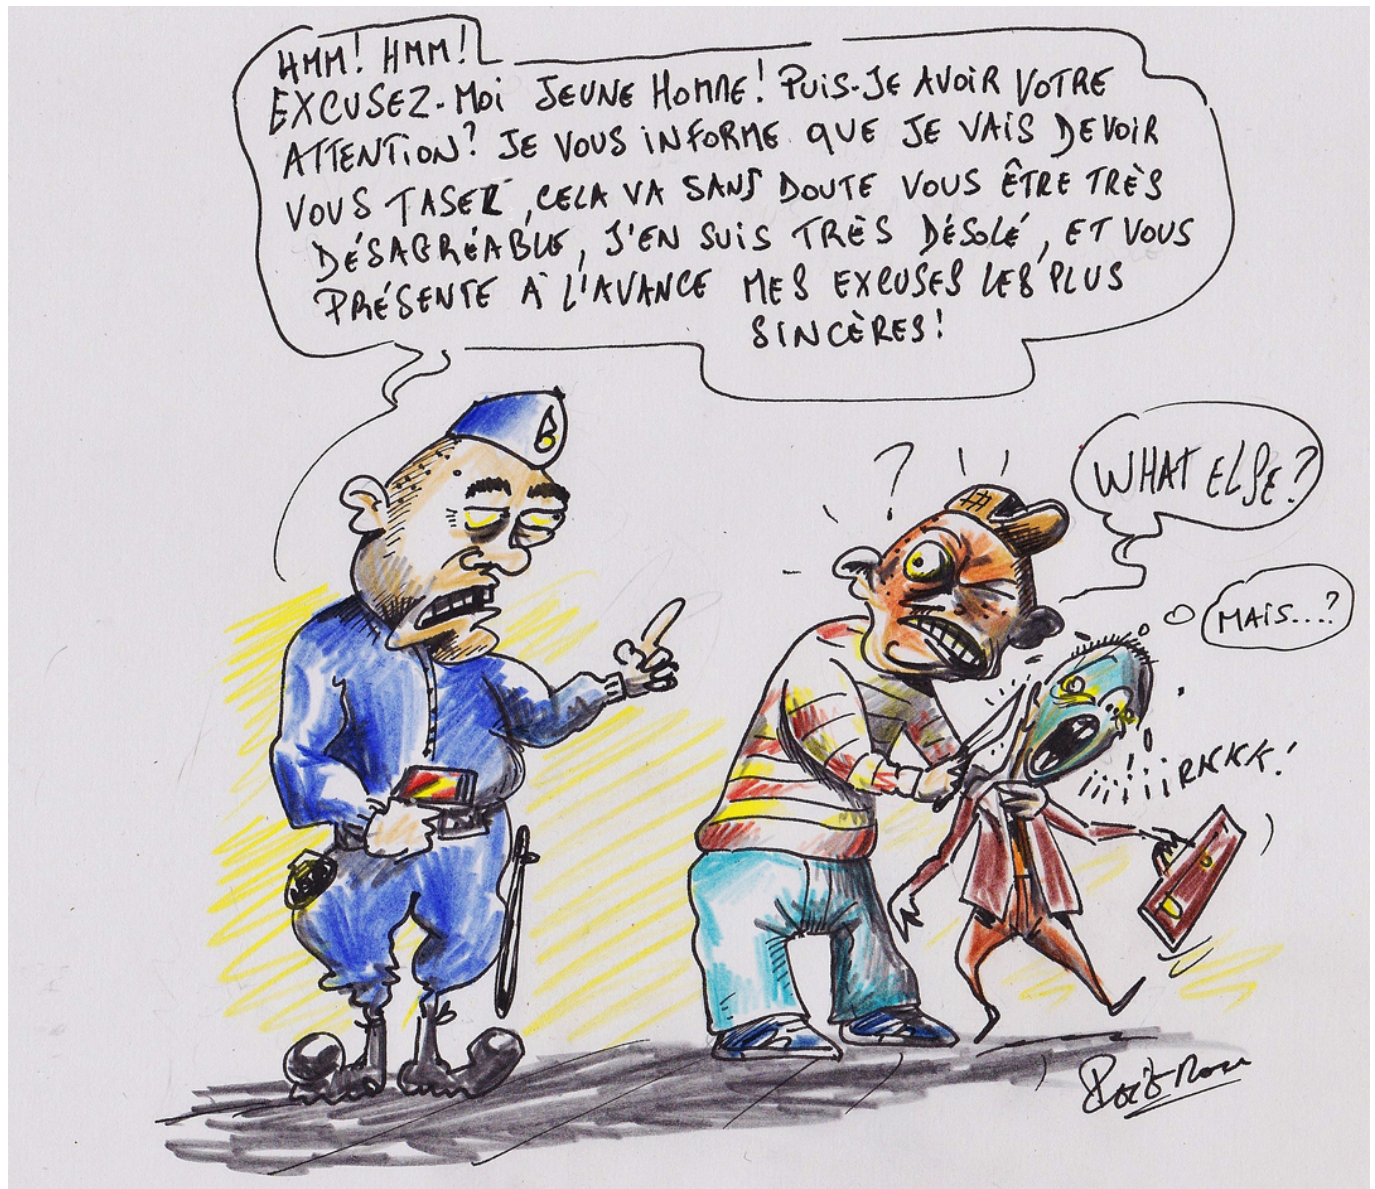 HMM! HMM!
EXCUSEZ-MOI JEUNE HOMME! PUIS-JE AVOIR VOTRE
ATTENTION? JE VOUS INFORME QUE JE VAIS DEVOIR
VOUS TASER, CELA VA SANS DOUTE VOUS ÊTRE TRÈS
DÉSAGRÉABLE, J'EN SUIS TRÈS DÉSOLÉ, ET VOUS
PRÉSENTE À L'AVANCE MES EXCUSES LES PLUS
SINCÈRES!
?
WHAT ELSE?
MAIS...?
iiiiiiRKKK!